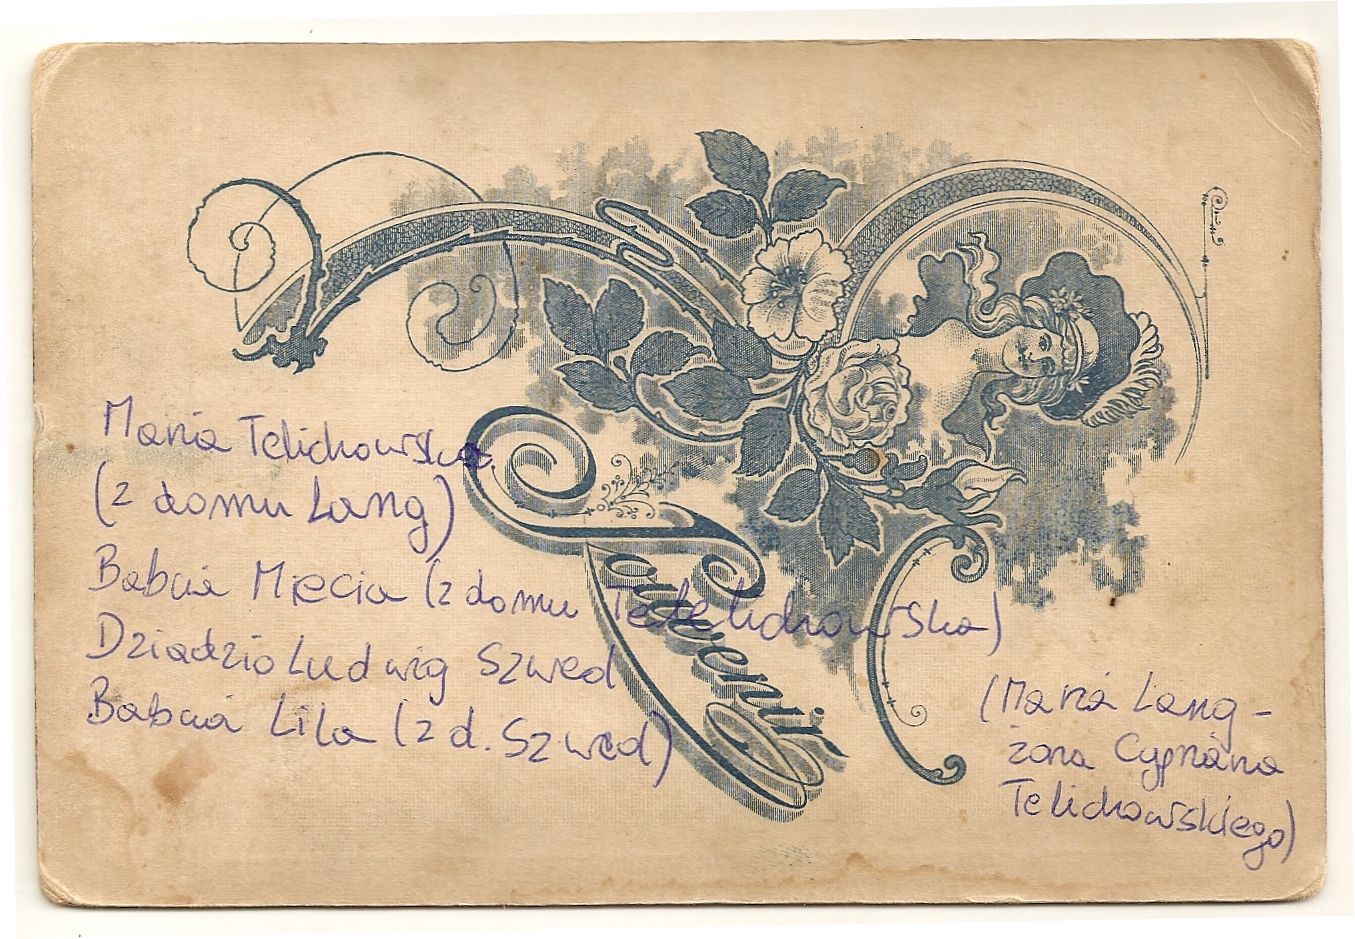 Maria Telichowska
(z domu Lang)
Babcia Miecia (z domu Telelichowska)
Dziadzio Ludwig Szwed
Babcia Lila (z d. Szwed)
Souvenir
(Maria Lang -
żona Cypriana
Telichowskiego)